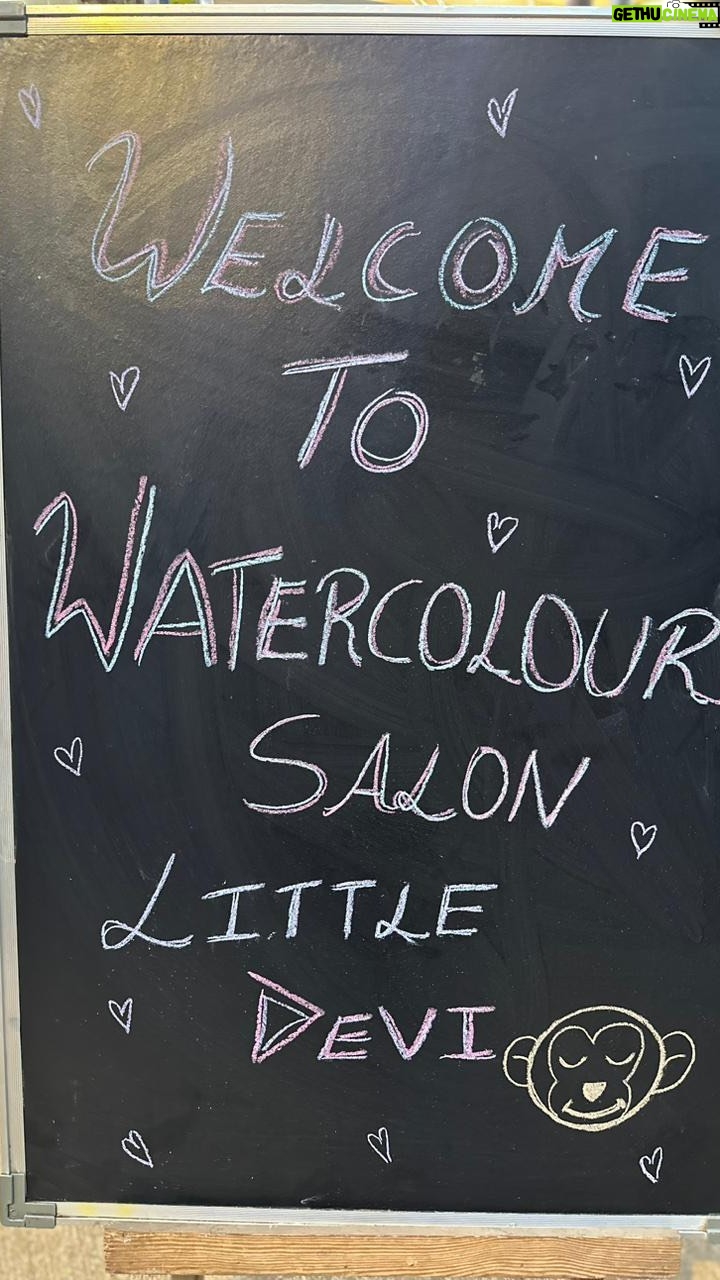 GETHU CINEMA
WELCOME
TO
WATERCOLOUR
SALON
LITTLE
DEVI